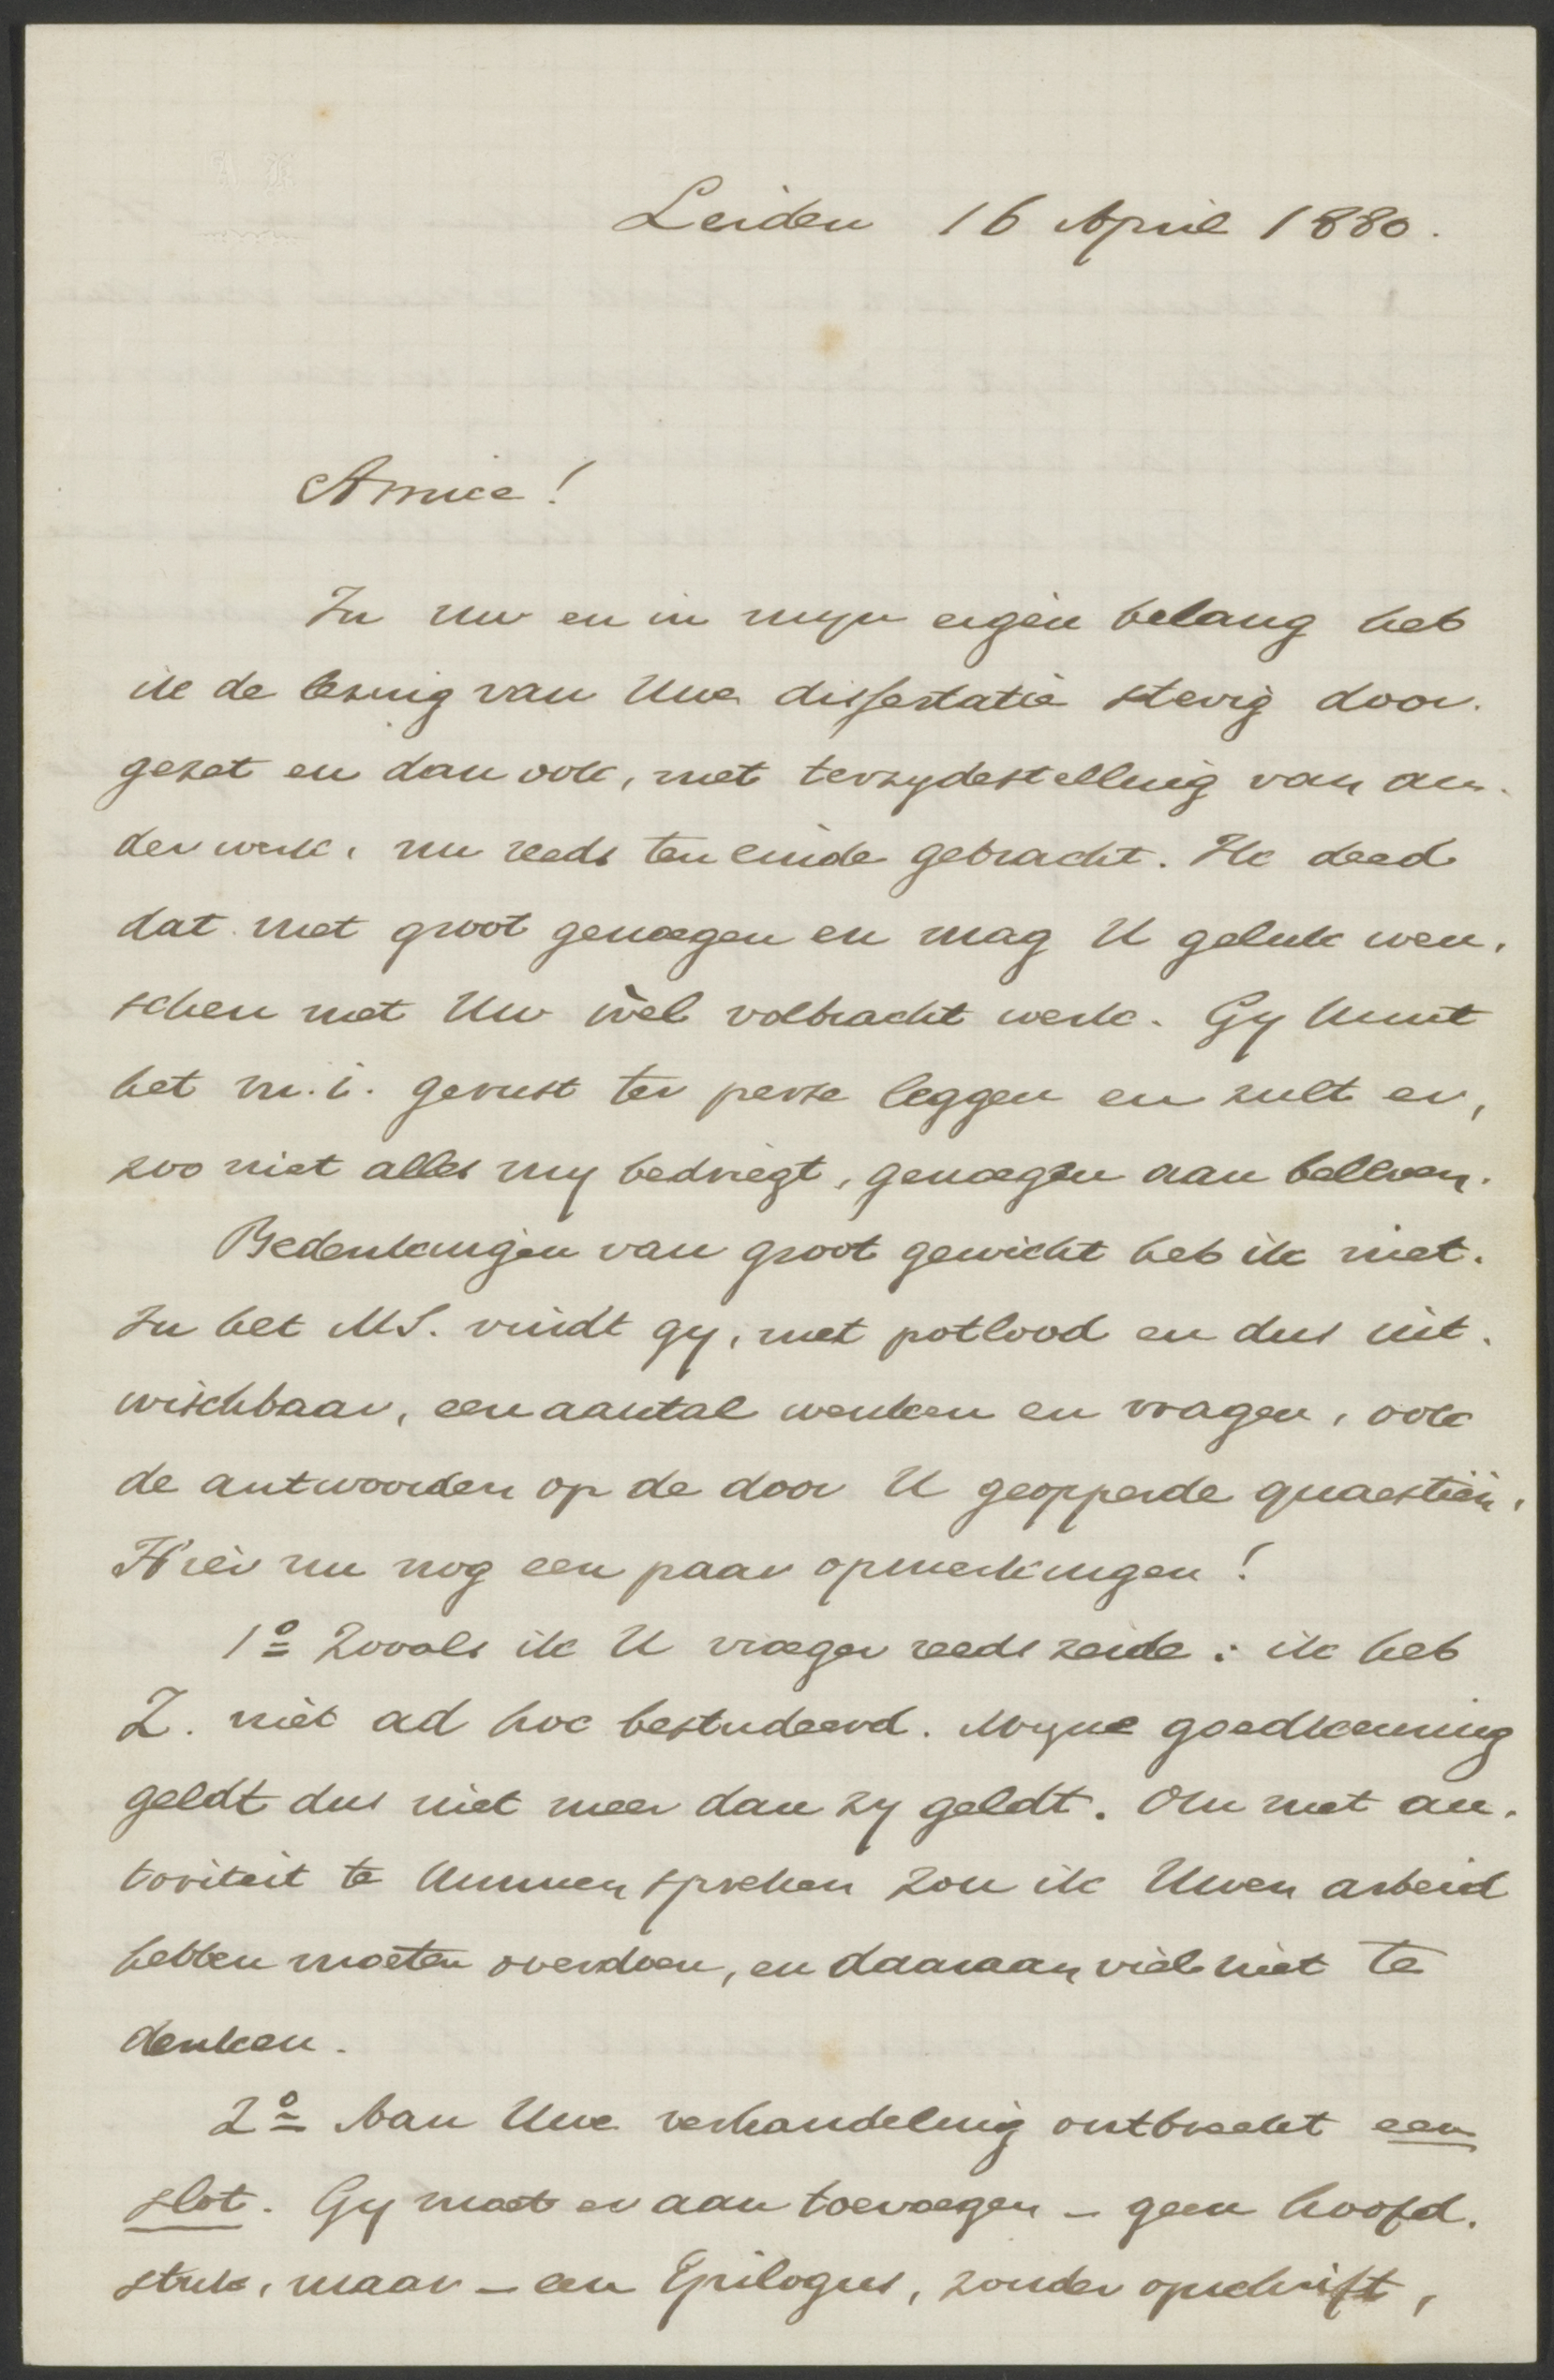 Leiden 16 April 1880.
Amice!
In uw en in myn eigen belang heb
ik de lezing van Uwe dissertatie stevig door-
gezet en dan ook, met terzydestelling van an-
der werk, nu reeds ten einde gebracht. Ik deed
dat met groot genoegen en mag U geluk wen-
schen met Uw wèl volbracht werk. Gy kunt
het m.i. gerust ter perse leggen en zult er,
zoo niet alles my bedriegt, genoegen aan beleven.
Bedenkingen van groot gewicht heb ik niet.
In het MS. vindt gy, met potlood en dus uit-
wischbaar, een aantal wenken en vragen, ook
de antwoorden op de door U geopperde quaestiën.
Hier nu nog een paar opmerkingen!
1º Zooals ik U vroeger reeds zeide: ik heb
Z. niet ad hoc bestudeerd. Myne goedkeuring
geldt dus niet meer dan zy geldt. Om met au-
toriteit te kunnen spreken zou ik Uwen arbeid
hebben moeten overdoen, en daaraan viel niet te
denken.
2º Aan Uwe verhandeling ontbreekt een
slot. Gy moet er aan toevoegen – geen hoofd-
stuk, maar – een Epilogus, zonder opschrift,